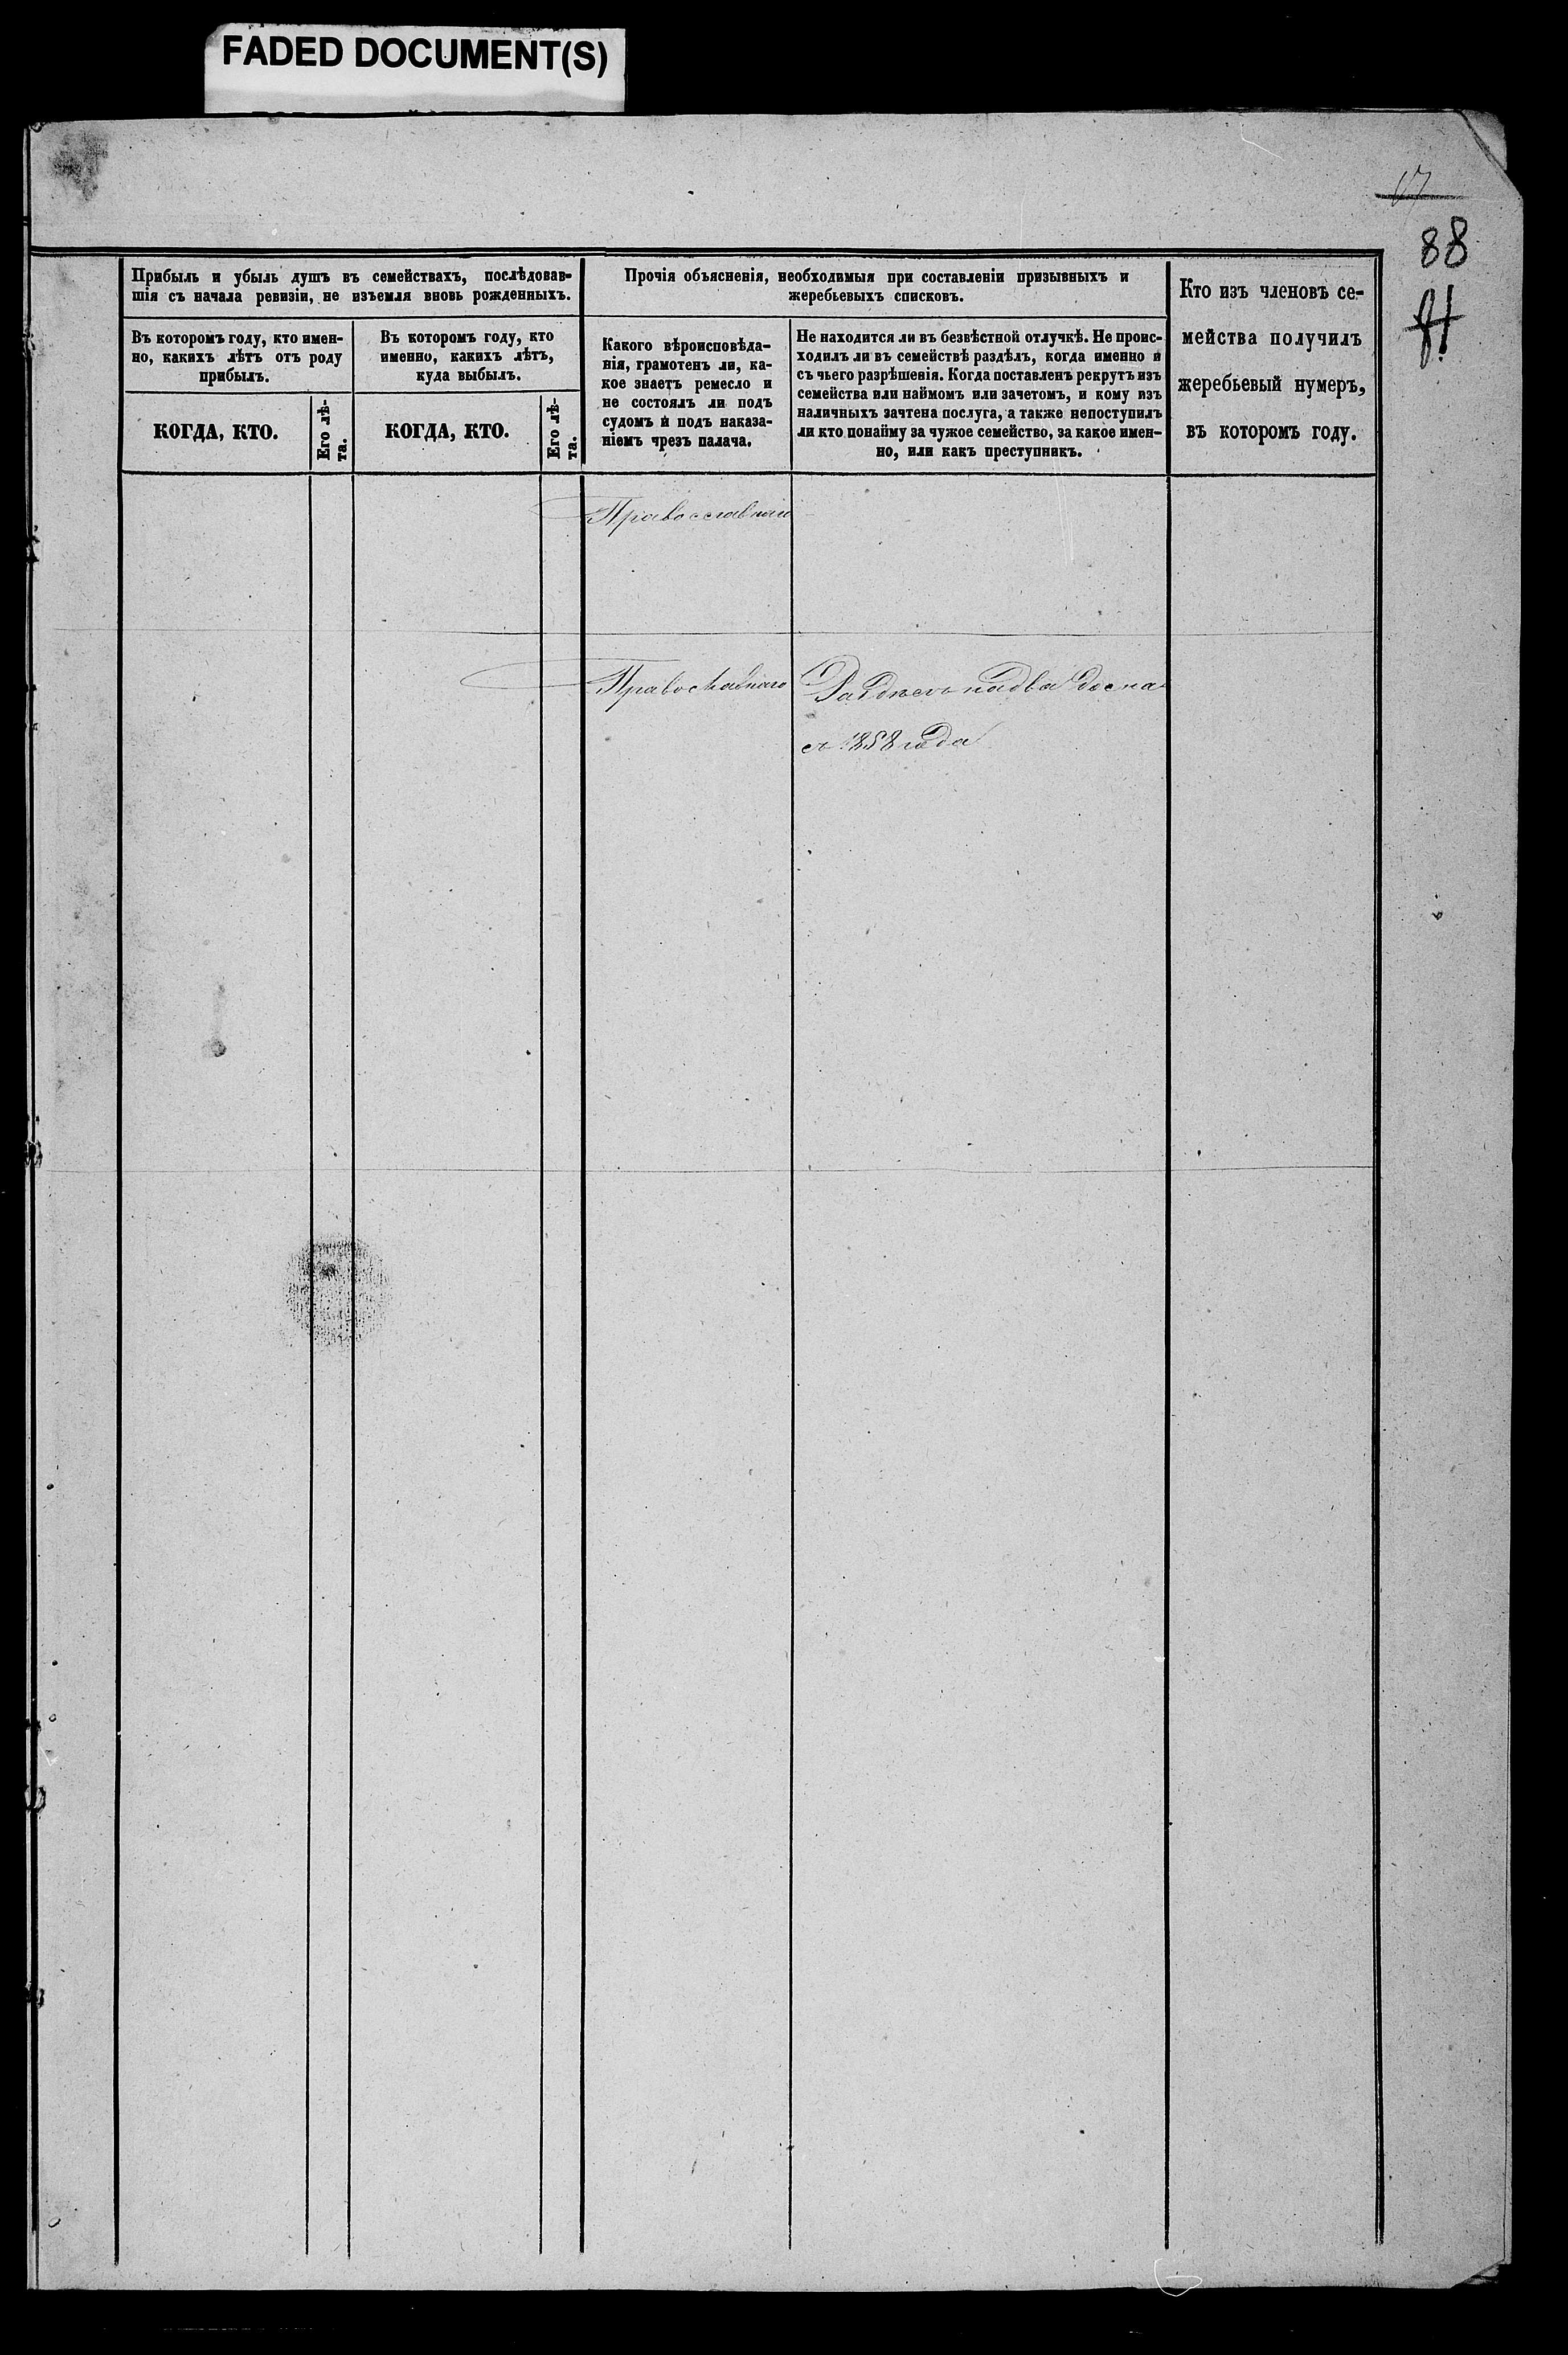 FADED DOCUMENT(S)
67
88
Прибыль и убыль душъ въ семействахъ, послѣдовав-
шія съ начала ревизіи, не изъемля вновь рожденныхъ.
Въ которомъ году, кто имен-
но, какихъ лѣтъ отъ роду
прибылъ.
Въ которомъ году, кто
именно, какихъ лѣтъ,
куда выбылъ.
КОГДА, КТО.
Его лѣ-
та.
КОГДА, КТО.
Его лѣ-
та.
Прочія объясненія, необходимыя при составленіи призывныхъ и
жеребьевыхъ списковъ.
Какого вѣроисповѣда-
нія, грамотенъ ли, ка-
кое знаетъ ремесло и
не состоялъ ли подъ
судомъ и подъ наказа-
ніемъ чрезъ палача.
Не находится ли въ безвѣстной отлучкѣ. Не проис-
ходилъ ли въ семействѣ раздѣлъ, когда именно и
съ чьего разрѣшенія. Когда поставленъ рекрутъ изъ
семейства или наймомъ или зачетомъ, и кому изъ
наличныхъ зачтена послуга, а также непоступилъ
ли кто понайму за чужое семейство, за какое имен-
но, или какъ преступникъ.
Кто изъ членовъ се-
мейства получилъ
жеребьевый нумеръ,
въ которомъ году.
Православнаго
Православнаго
Раздѣлъ на два дома
съ 1858 года